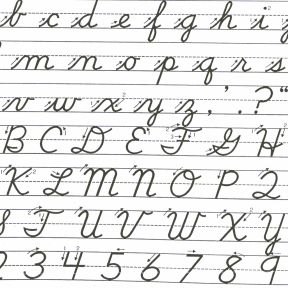 b c d e f g h i
m n o p q r s
v w x y z , ' . ? "
B C D E F G H
K L M N O P Q
S T U V W X Y
2 3 4 5 6 7 8 9